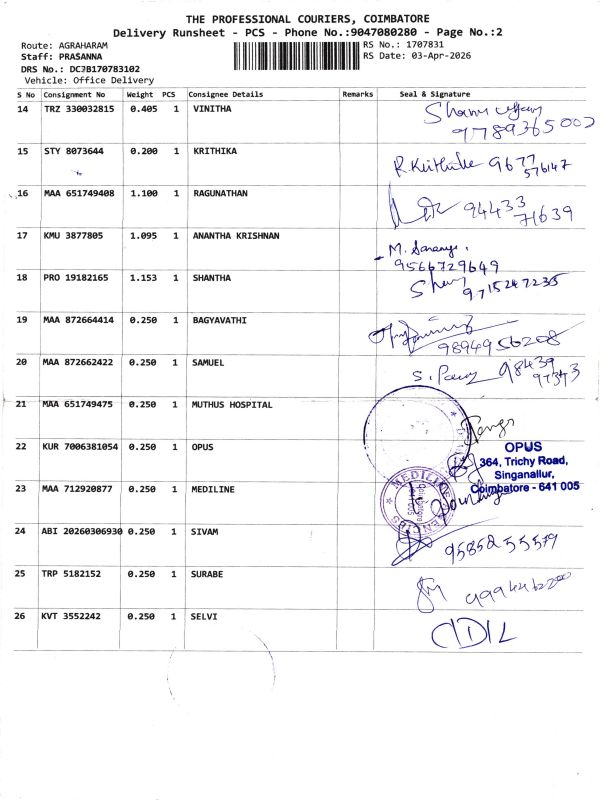 THE PROFESSIONAL COURIERS, COIMBATORE
Delivery Runsheet - PCS - Phone No.:9047080280 - Page No.:2
Route: AGRAHARAM
Staff: PRASANNA
DRS No.: DCJB170783102
Vehicle: Office Delivery
RS No.: 1707831
RS Date: 03-Apr-2026
S No Consignment No Weight PCS Consignee Details Remarks Seal & Signature
14 TRZ 330032815 0.405 1 VINITHA
9789365002
15 STY 8073644 0.200 1 KRITHIKA R. Krithika 9677
576147
16 MAA 651749408 1.100 1 RAGUNATHAN 94433
71639
17 KMU 3877805 1.095 1 ANANTHA KRISHNAN M. Saranya.
9566729649
18 PRO 19182165 1.153 1 SHANTHA
9715247235
19 MAA 872664414 0.250 1 BAGYAVATHI
9894956208
20 MAA 872662422 0.250 1 SAMUEL 98439
97373
21 MAA 651749475 0.250 1 MUTHUS HOSPITAL
22 KUR 7006381054 0.250 1 OPUS
OPUS
364, Trichy Road,
Singanallur,
Coimbatore - 641 005
23 MAA 712920877 0.250 1 MEDILINE
MEDILINE
24 ABI 20260306930 0.250 1 SIVAM
9585255579
25 TRP 5182152 0.250 1 SURABE
26 KVT 3552242 0.250 1 SELVI